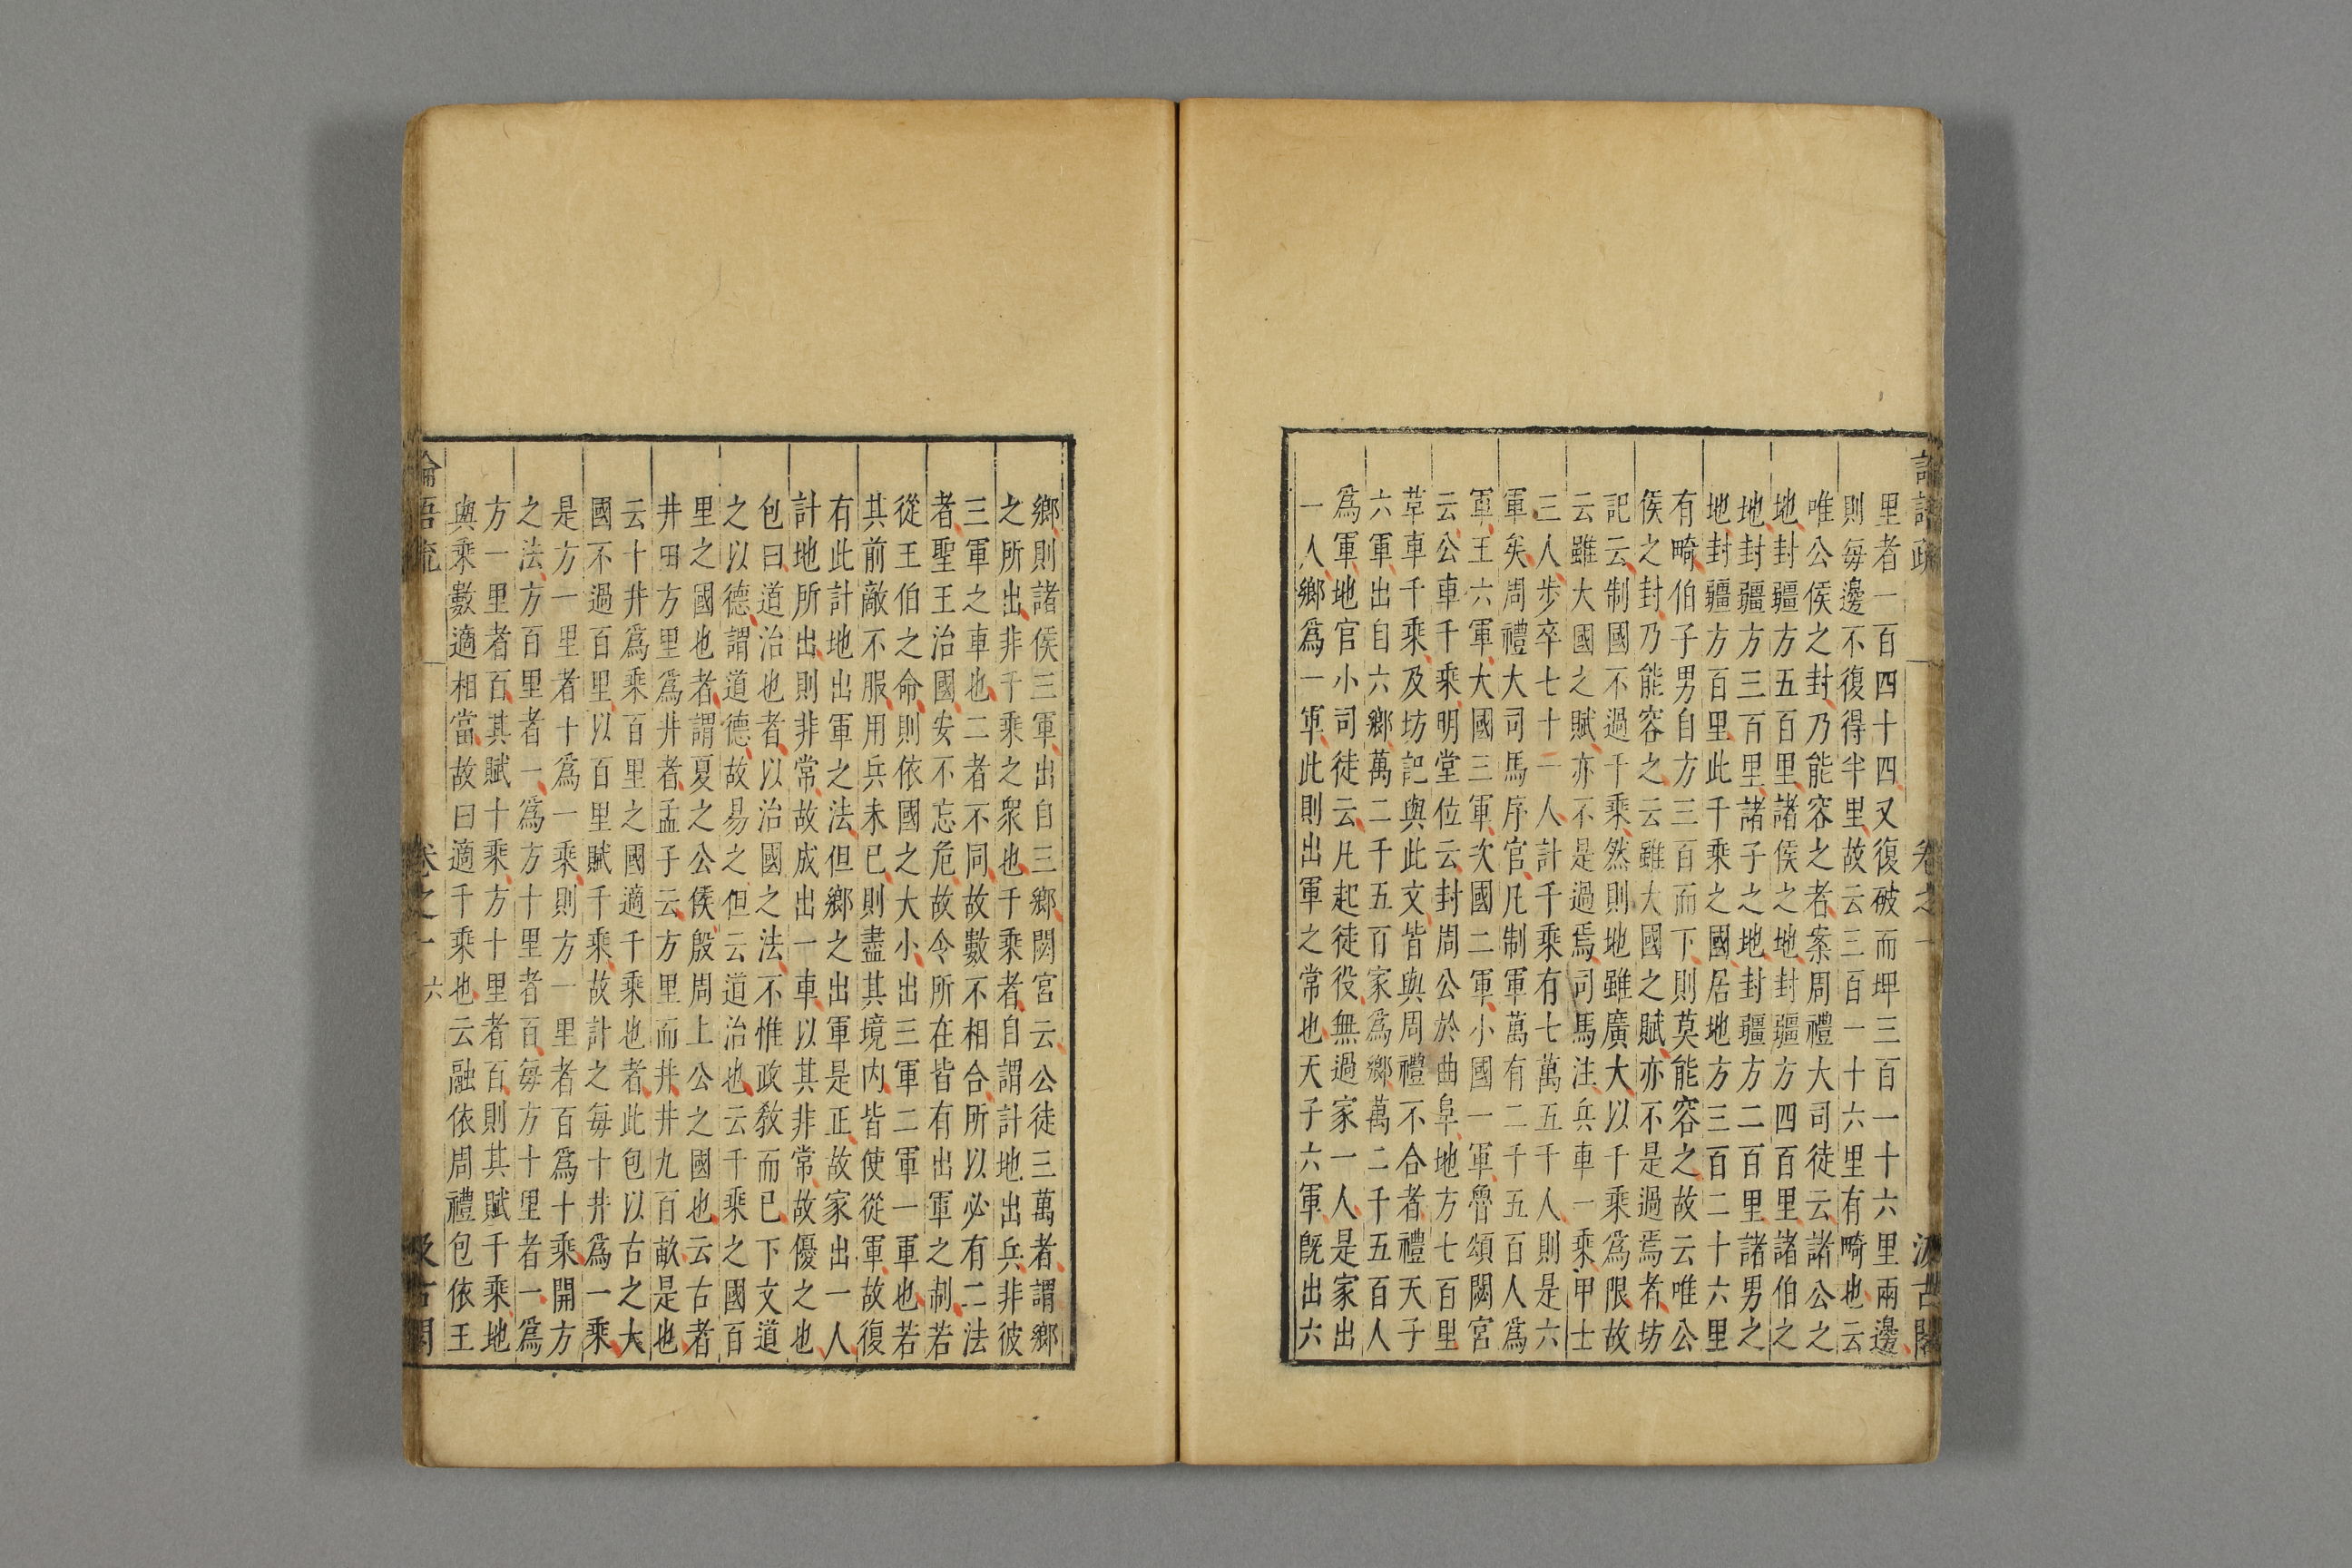 論語疏 卷之一 汲古閣
里者一百四十四又復破而埤三百一十六里兩邊
則每邊不復得半里故云三百一十六里有畸也云
唯公侯之封乃能容之者案周禮大司徒云諸公之
地封疆方五百里諸侯之地封疆方四百里諸伯之
地封疆方三百里諸子之地封疆方二百里諸男之
地封疆方百里此千乘之國居地方三百一十六里
有畸伯子男自方三百而下則莫能容之故云唯公
侯之封乃能容之云雖大國之賦亦不是過焉者坊
記云制國不過千乘然則地雖廣大以千乘爲限故
云雖大國之賦亦不是過焉司馬注兵車一乘甲士
三人步卒七十二人計千乘有七萬五千人則是六
軍矣周禮大司馬序官凡制軍萬有二千五百人爲
軍王六軍大國三軍次國二軍小國一軍魯頌閟宮
云公車千乘明堂位云封周公於曲阜地方七百里
革車千乘及坊記與此文皆與周禮不合者禮天子
六軍出自六鄉萬二千五百家爲鄉萬二千五百人
爲軍地官小司徒云凡起徒役無過家一人是家出
一人鄉爲一軍此則出軍之常也天子六軍旣出六
鄉則諸侯三軍出自三鄉閟宮云公徒三萬者謂鄉
之所出非千乘之衆也千乘者自謂計地出兵非彼
三軍之車也二者不同故數不相合所以必有二法
者聖王治國安不忘危故令所在皆有出軍之制若
從王伯之命則依國之大小出三軍二軍一軍也若
其前敵不服用兵未已則盡其境内皆使從軍故復
有此計地出軍之法但鄉之出軍是正故家出一人
計地所出則非常故成出一車以其非常故優之也
包曰道治也者以治國之法不惟政敎而已下文道
之以德謂道德故易之但云道治也云千乘之國百
里之國也者謂夏之公侯殷周上公之國也云古者
井田方里爲井者孟子云方里而井井九百畝是也
云十井爲乘百里之國適千乘也者此包以古之大
國不過百里以百里賦千乘故計之每十井爲一乘
是方一里者十爲一乘則方一里者百爲十乘開方
之法方百里者一爲方十里者百每方十里者一爲
方一里者百其賦十乘方十里者百則其賦千乘地
與乘數適相當故曰適千乘也云融依周禮包依王
論語疏 卷之一 六 汲古閣